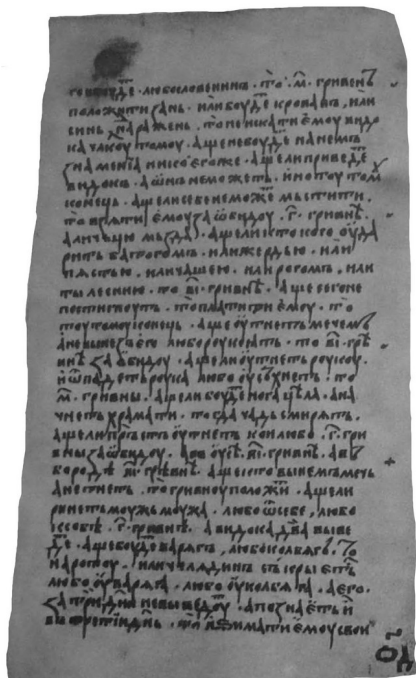 гои боудⷮе · любо словенинъ · то · м҃ · гривенъ
положити за нь · или боудⷮе кровавъ, или
синь надъраженъ, то не искати ѥмоу видо
ка человѣкоу томоу · аще не боудⷮе на немъ
знамениа никоѥгоже · аще ли приведⷮе
видокъ · а ѡнъ не можеть · и но ту томоу
конець · аще ли себе не можⷮе мьстити ·
то взѧти ѥмоу за ѡбидоу · г҃ · гривнѣ ·
а личьцю мьзда · аще ли кто кого оуда
рить батогомъ · или жердью · или
пѧстью, или чашею, или рогомъ, или
тылеснию · то · в҃і · гривнѣ · аще сего не
постигноуть · то платити ѥмоу · то
тоу томоу конець · аще оутнеть мечемъ
а не вынезъ его любо роукоѧть · то · в҃і · грѣ
внѣ за ѡбидоу · аще ли оутнеть роукоу ·
и ѿпадеть роука любо оусъхнеть · то
м҃ · гривны · аще ли боудⷮе нога цѣла · а на
чнеть храмати · тогда чадь смирѧть ·
аще ли прьстъ оутнеть кои любо · г҃ · гри
вны за ѡбидоу · а во оусѣ · в҃і · гривнѣ · а въ
бородѣ · в҃і · грѣвнѣ · аще кто вынемъ мечь
а не тнеть · то гривноу положи · аще ли
ринеть моужь моужа · любо ѿ себе, любо
к собѣ · г҃ · гривнѣ · а видока два выве
дⷮе · аще боудⷮе варѧгъ, любо колбѧгъ · то
на ротоу · или челѧдинъ съкрыѥтьсѧ
любо оу варѧга · любо оу колбѧга · а его ·
за три дни не выведоуть · а познаѥть и
въ третии днь · то изимати ѥмоу свои
о҃д